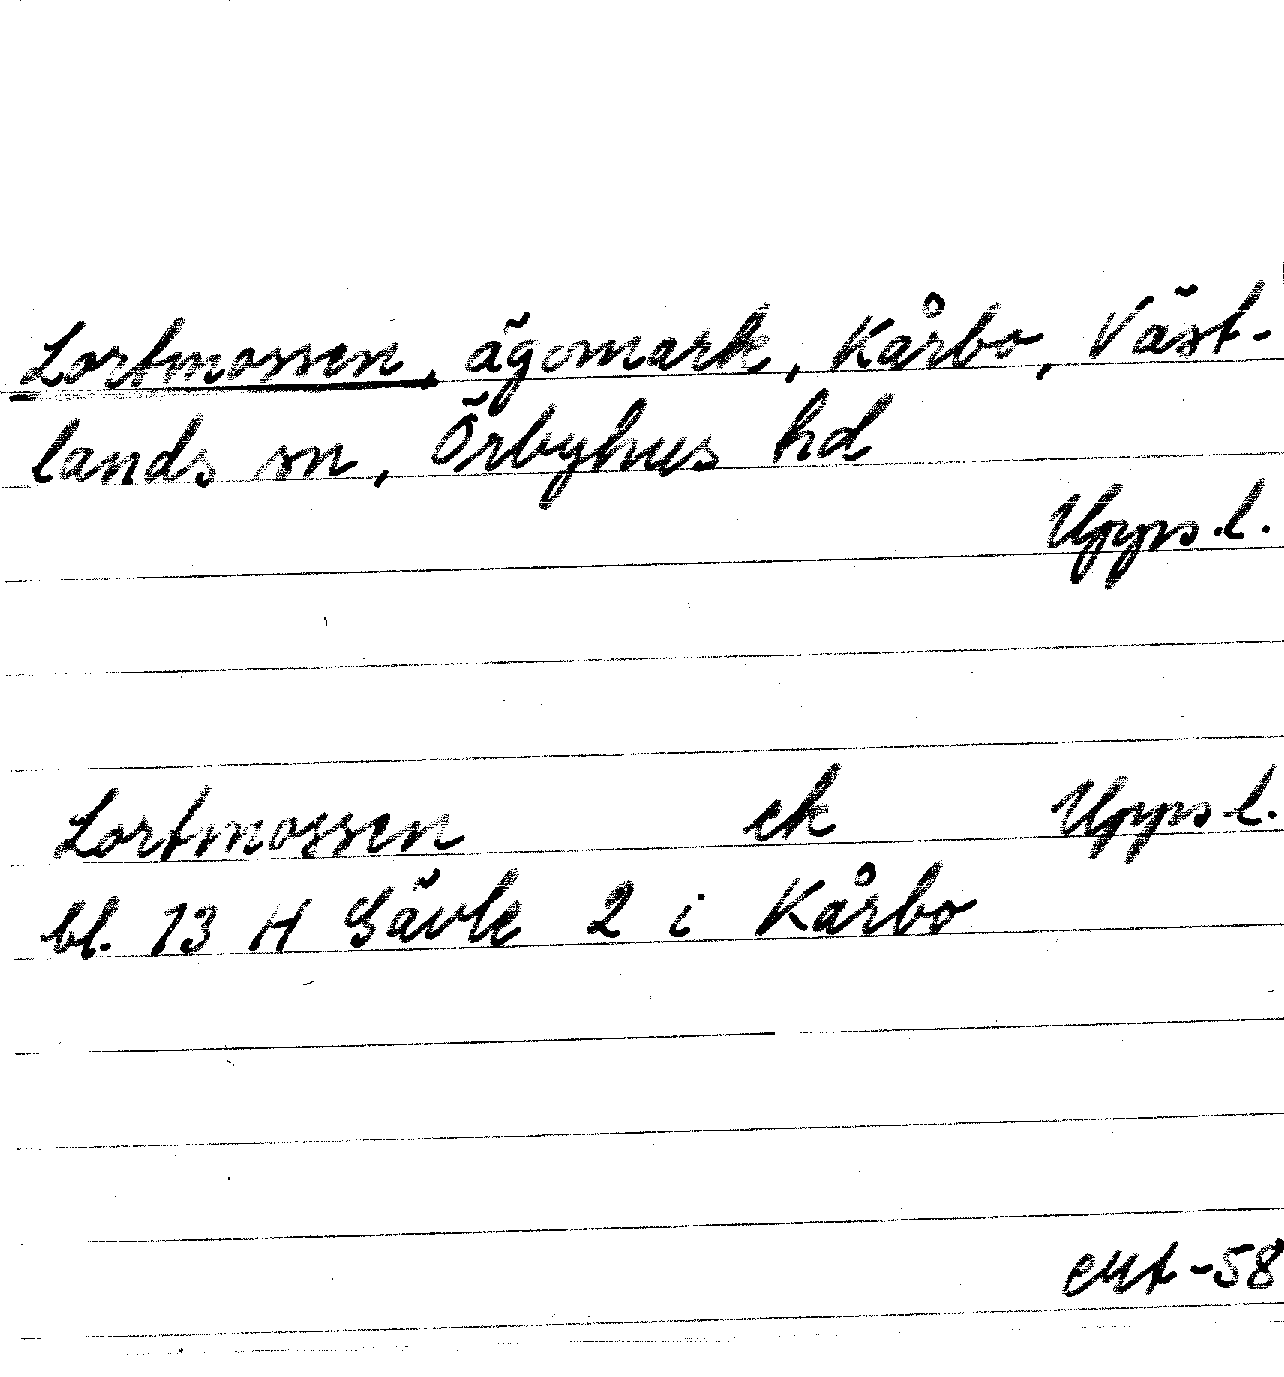 Lortmossen, ägomark, Kårbo, Väst-
lands sn, Örbyhus hd
Upps. l.
Lortmossen ek Upps l.
bl. 13 H Gävle 2 i Kårbo
-58